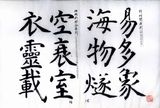 易多象
海物燧
空室
衣靈載